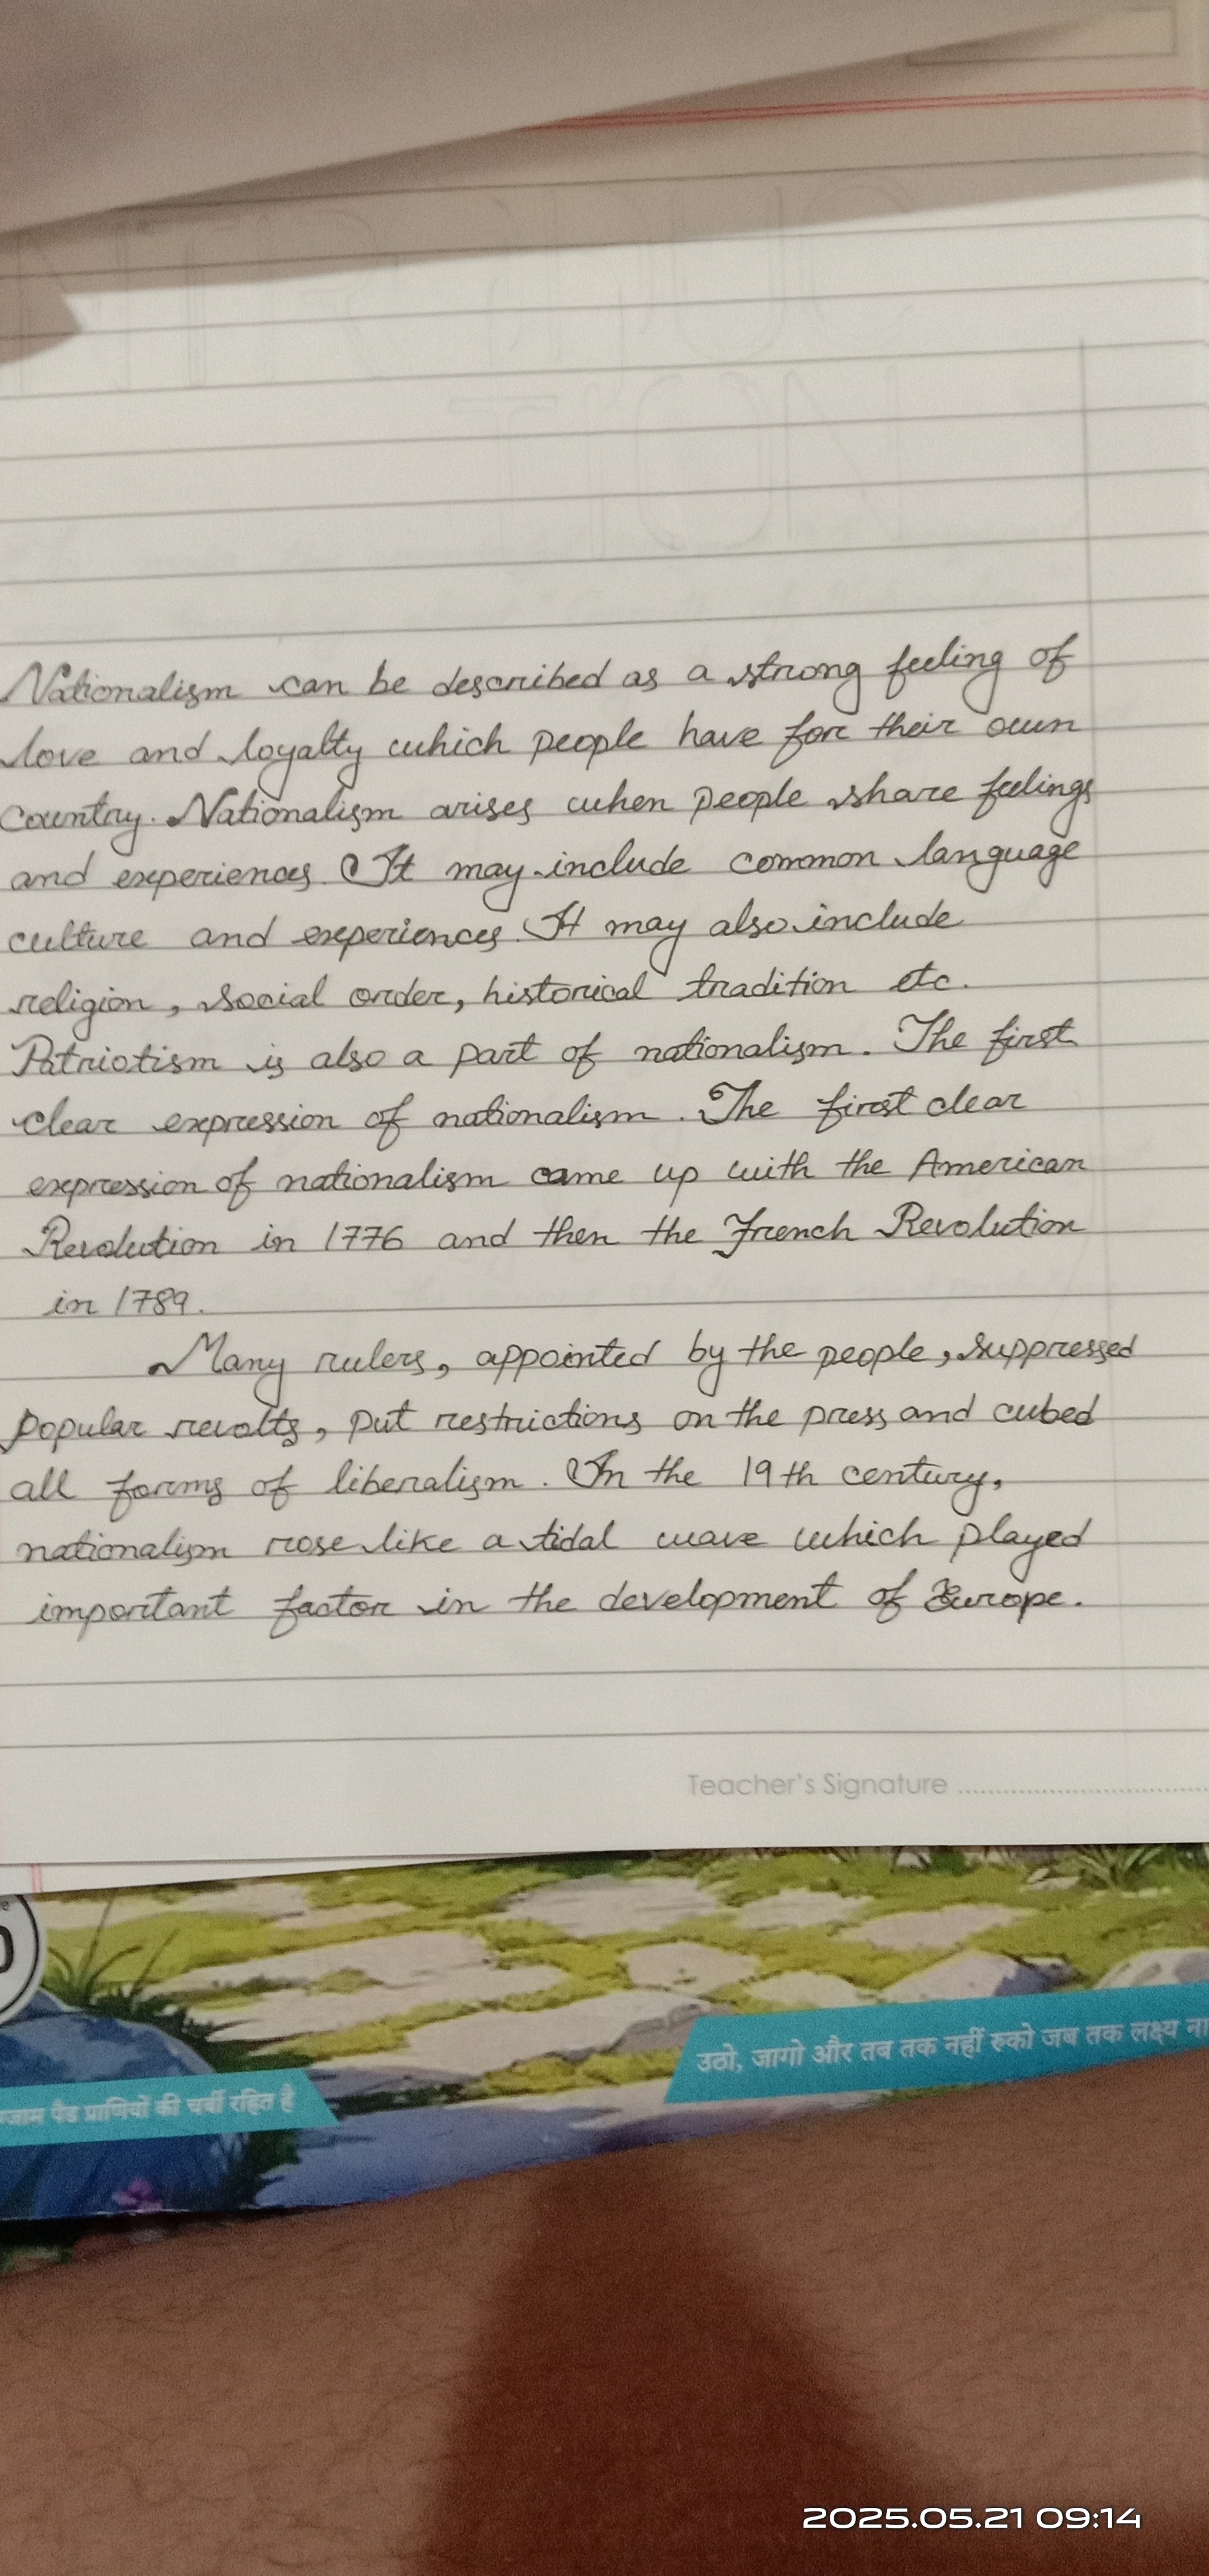 Nationalism can be described as a strong feeling of
love and loyalty which people have for their own
country. Nationalism arises when people share feelings
and experiences. It may include common language
culture and experiences. It may also include
religion, social order, historical tradition etc.
Patriotism is also a part of nationalism. The first
clear expression of nationalism. The first clear
expression of nationalism came up with the American
Revolution in 1776 and then the French Revolution
in 1789.
Many rulers, appointed by the people, suppressed
popular revolts, put restrictions on the press and cubed
all forms of liberalism. In the 19th century,
nationalism rose like a tidal wave which played
important factor in the development of Europe.
Teacher's Signature
उठो, जागो और तब तक नहीं रुको जब तक लक्ष्य
पैड प्राणियों की चर्बी रहित है
2025.05.21 09:14